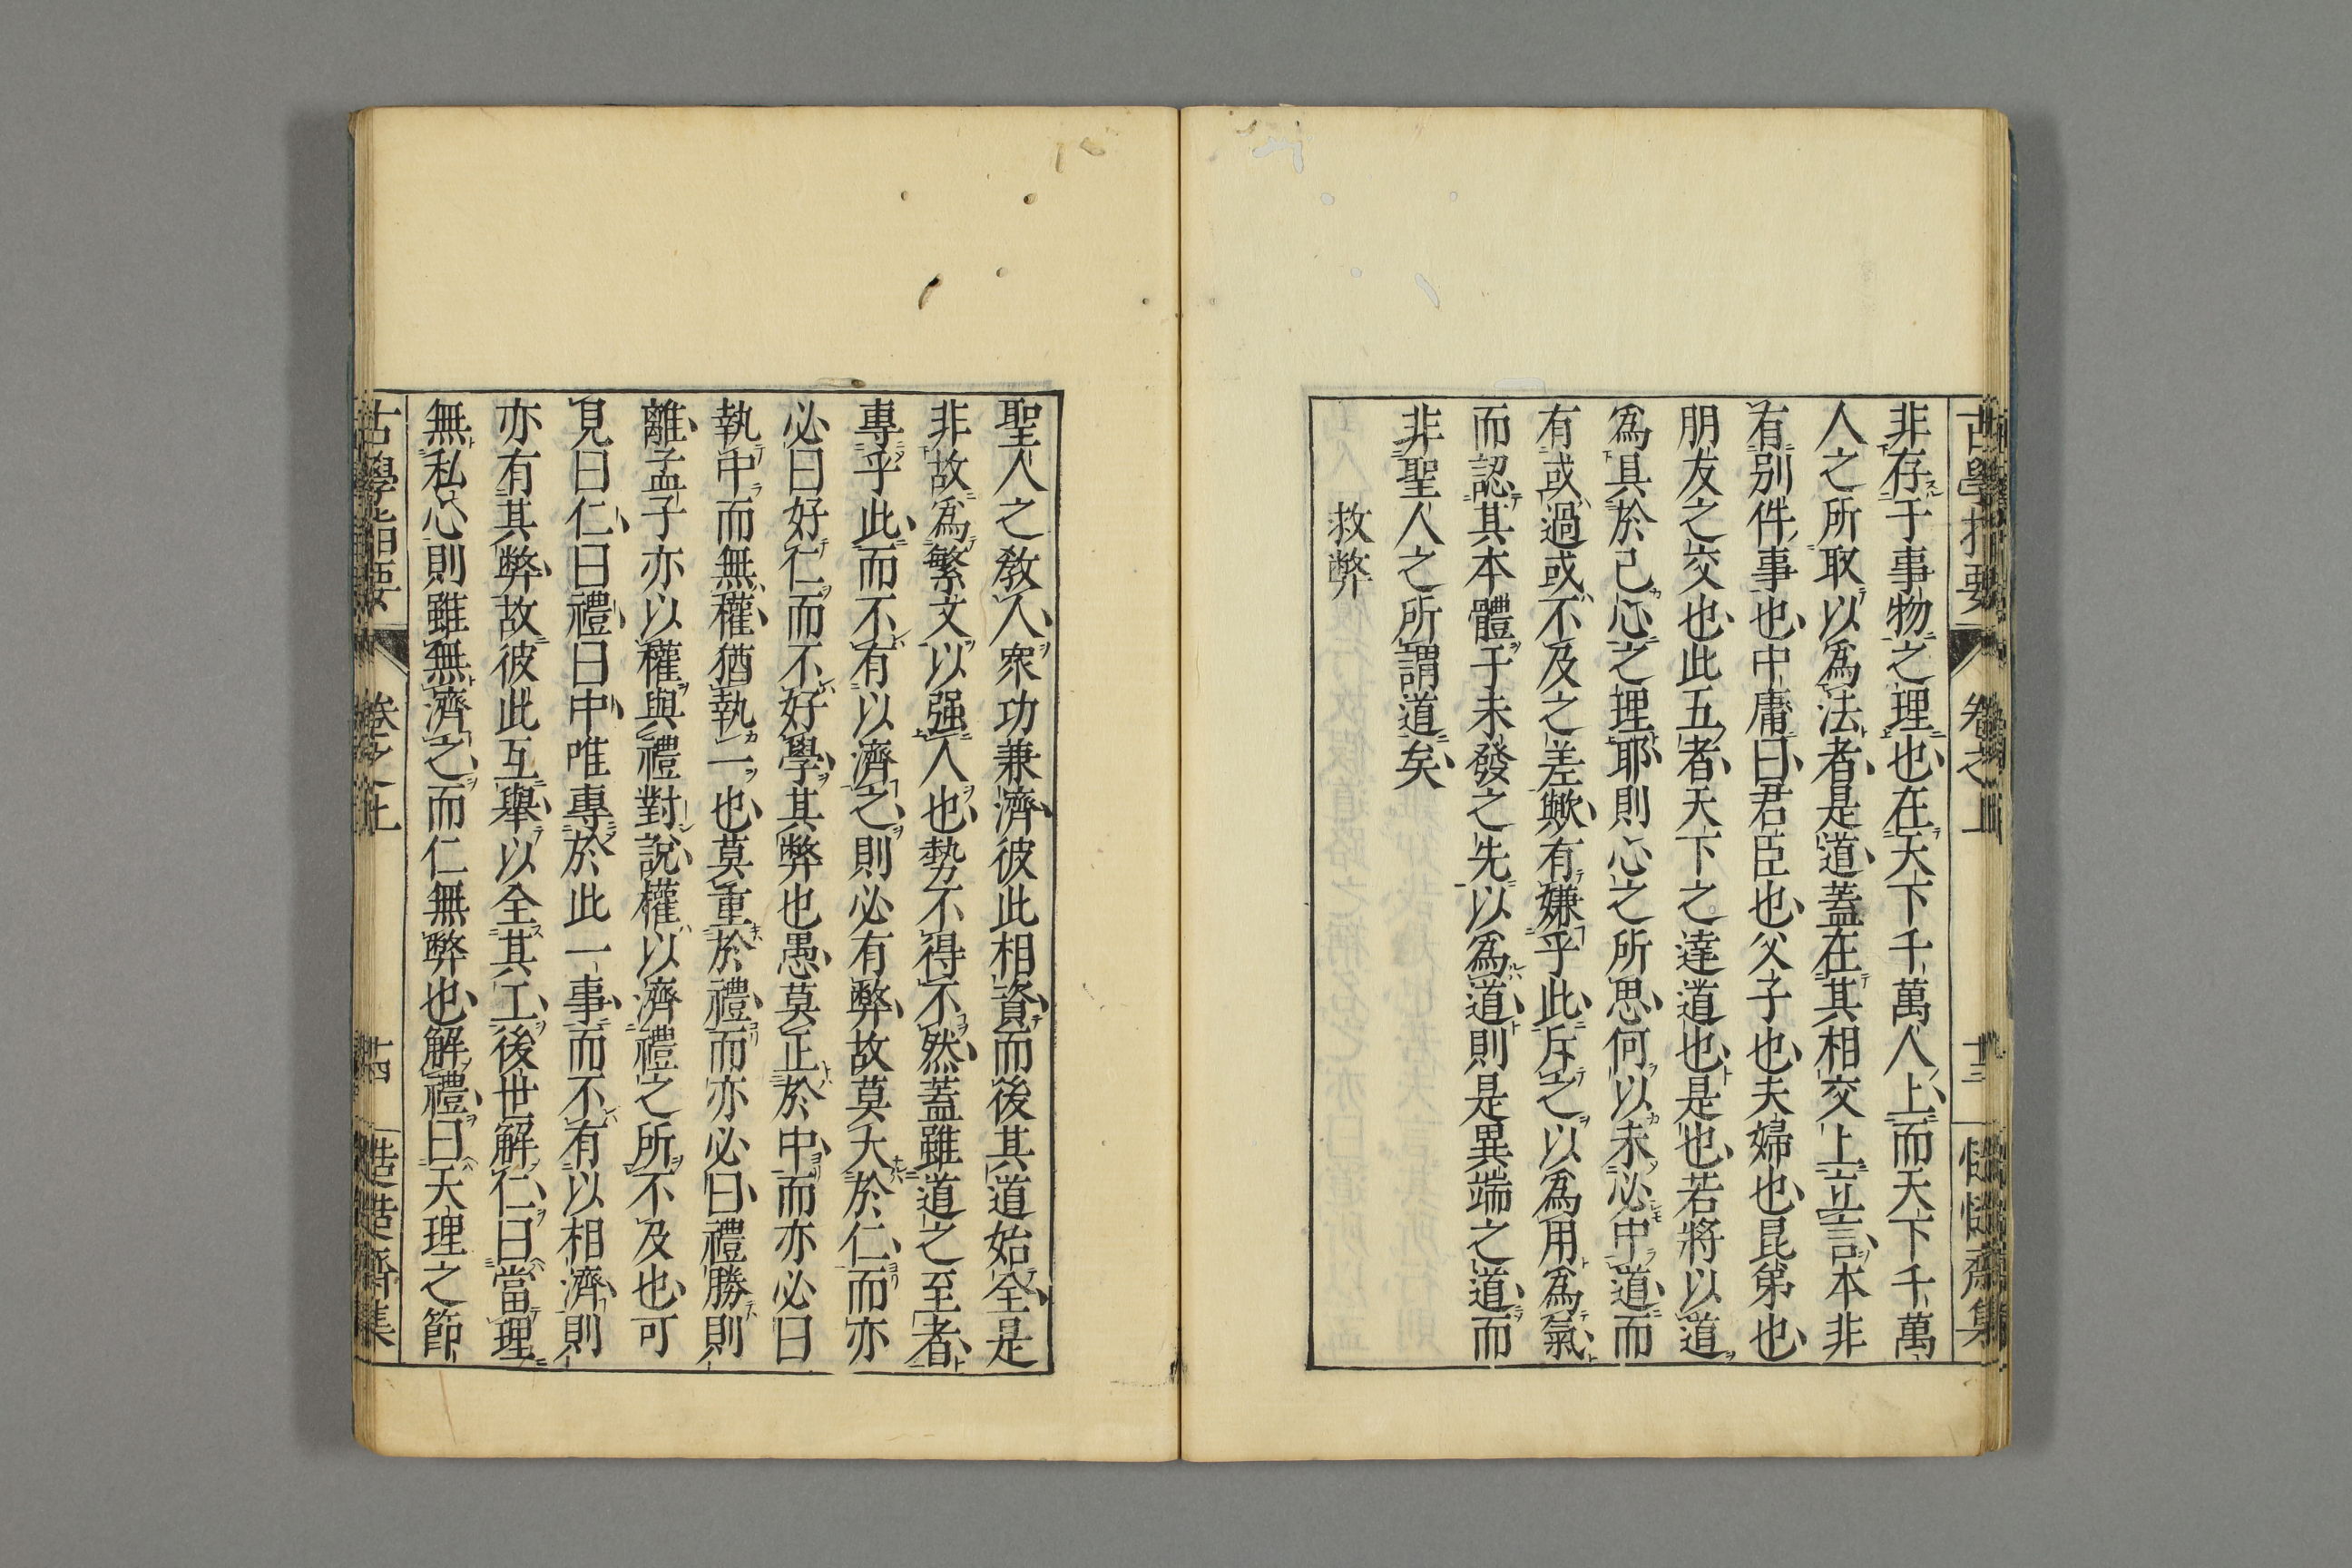 非存于事物之理也在天下千萬人上而天下千萬
人之所取以爲法者是道蓋在其相交上立言本非
有別件事也中庸曰君臣也父子也夫婦也昆弟也
朋友之交也此五者天下之達道也是也若將以道
爲具於己心之理耶則心之所思何以未必中道而
有或過或不及之差歟有嫌乎此斥之以爲用爲氣
而認其本體于未發之先以爲道則是異端之道而
非聖人之所謂道矣
救弊
聖人之敎人衆功兼濟彼此相資而後其道始全是
非故爲繁文以强人也勢不得不然蓋雖道之至者
專乎此而不有以濟之則必有弊故莫大於仁而亦
必曰好仁而不好學其弊也愚莫正於中而亦必曰
執中而無權猶執一也莫重於禮而亦必曰禮勝則
離孟子亦以權與禮對說權以濟禮之所不及也可
見曰仁曰禮曰中唯專於此一事而不有以相濟則
亦有其弊故彼此互舉以全其工後世解仁曰當理
無私心則雖無濟之而仁無弊也解禮曰天理之節
古學指要 卷之上 十四